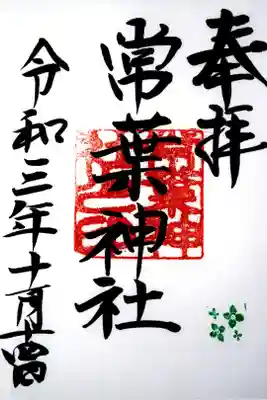 奉拝
常葉神社
令和三年十一月十四日